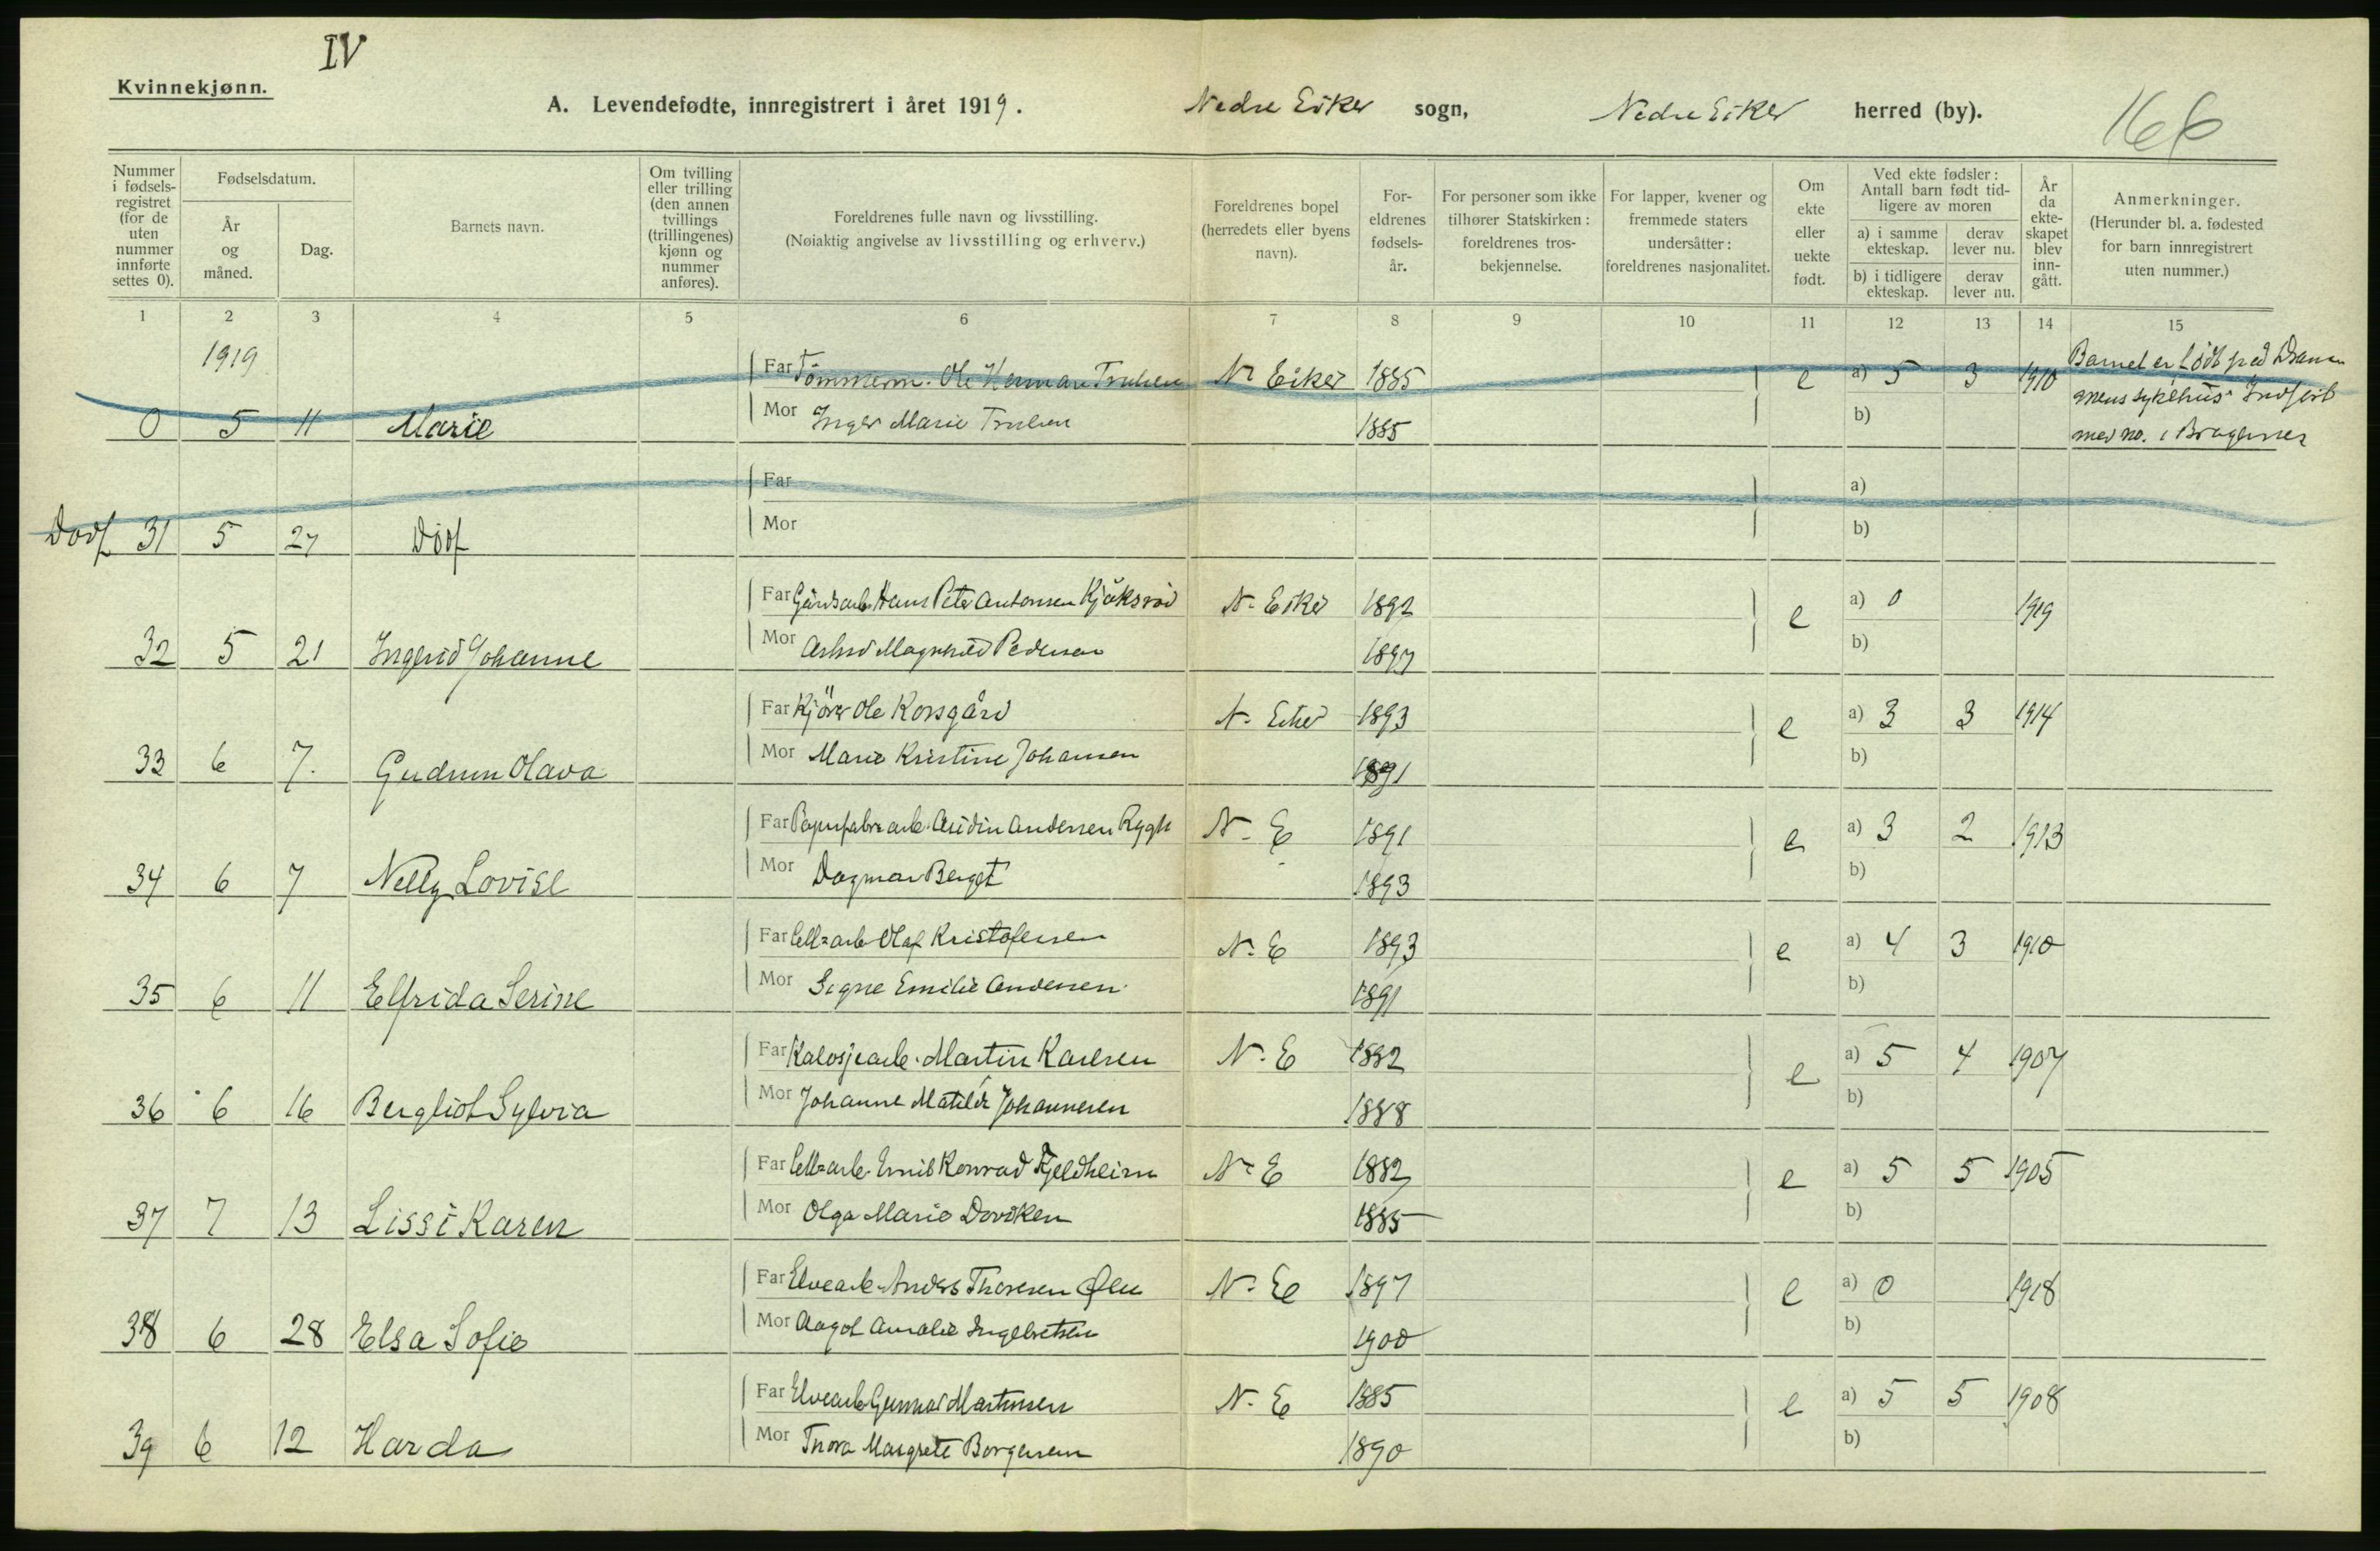 IV
Kvinnekjønn.
A. Levendefødte, innregistrert i året 1919. Nedre Eiker sogn, Nedre Eiker herred (by). 166
Nummer i fødsels-registret (for de uten nummer innførte settes 0).
Fødselsdatum.
År og måned.
Dag.
Barnets navn.
Om tvilling eller trilling (den annen tvillings (trillingenes) kjønn og nummer anføres).
Foreldrenes fulle navn og livsstilling.
(Nøiaktig angivelse av livsstilling og erhverv.)
Foreldrenes bopel (herredets eller byens navn).
For-eldrenes fødsels-år.
For personer som ikke tilhører Statskirken: foreldrenes tros-bekjennelse.
For lapper, kvener og fremmede staters undersåtter: foreldrenes nasjonalitet.
Om ekte eller uekte født.
Ved ekte fødsler: Antall barn født tid-ligere av moren
a) i samme ekteskap. derav lever nu.
b) i tidligere ekteskap. derav lever nu.
År da ekte-skapet blev inn-gått.
Anmerkninger.
(Herunder bl. a. fødested for barn innregistrert uten nummer.)
1 2 3 4 5 6 7 8 9 10 11 12 13 14 15
1919
Far Tömmerm. Ole Herman Trulsen N. Eiker 1885 e a) 5 3 1910 Barnet er födt på Dram-
mens sykehus. Indfört
0 5 11 Marie Mor Inger Marie Trulsen 1885 b) med no. i Bragernes
Far a)
Dødf 31 5 27 Dødf Mor b)
Far Gårdsarb. Hans Peter Antonsen Kjöksrød N. Eiker 1892 e a) 0 1919
32 5 21 Ingerid Johanne Mor Magnhild Pedersen 1897 b)
Far Kjörer Ole Korsgård N. Eiker 1893 e a) 3 3 1914
33 6 7. Gudrun Olava Mor Marie Kristine Johansen 1891 b)
Far Papirfabrarb. Andersen Rygh N. E 1891 e a) 3 2 1913
34 6 7 Nelly Lovise Mor Dagmar Berget 1893 b)
Far Cell=arb Olaf Kristofersen N. E 1893 e a) 4 3 1910
35 6 11 Elfrida Serine Mor Signe Emilie Andersen 1891 b)
Far Kalosjearb. Martin Karlsen N. E 1882 e a) 5 4 1907
36 6 16 Bergliot Sylvia Mor Johanne Matilde Johannesen 1888 b)
Far Cell=arb. Emil Konrad Fjeldheim N. E 1882 e a) 5 5 1905
37 7 13 Lissi Karen Mor Olga Marie 1885 b)
Far Elvearb. Anders Thoresen Øen N. E 1897 e a) 0 1918
38 6 28 Elsa Sofie Mor Aagot Amalie Ingebretsen 1900 b)
Far Elvearb Gunnar Martinsen N. E 1885 e a) 5 5 1908
39 6 12 Harda Mor Thora Margrete Borgersen 1890 b)